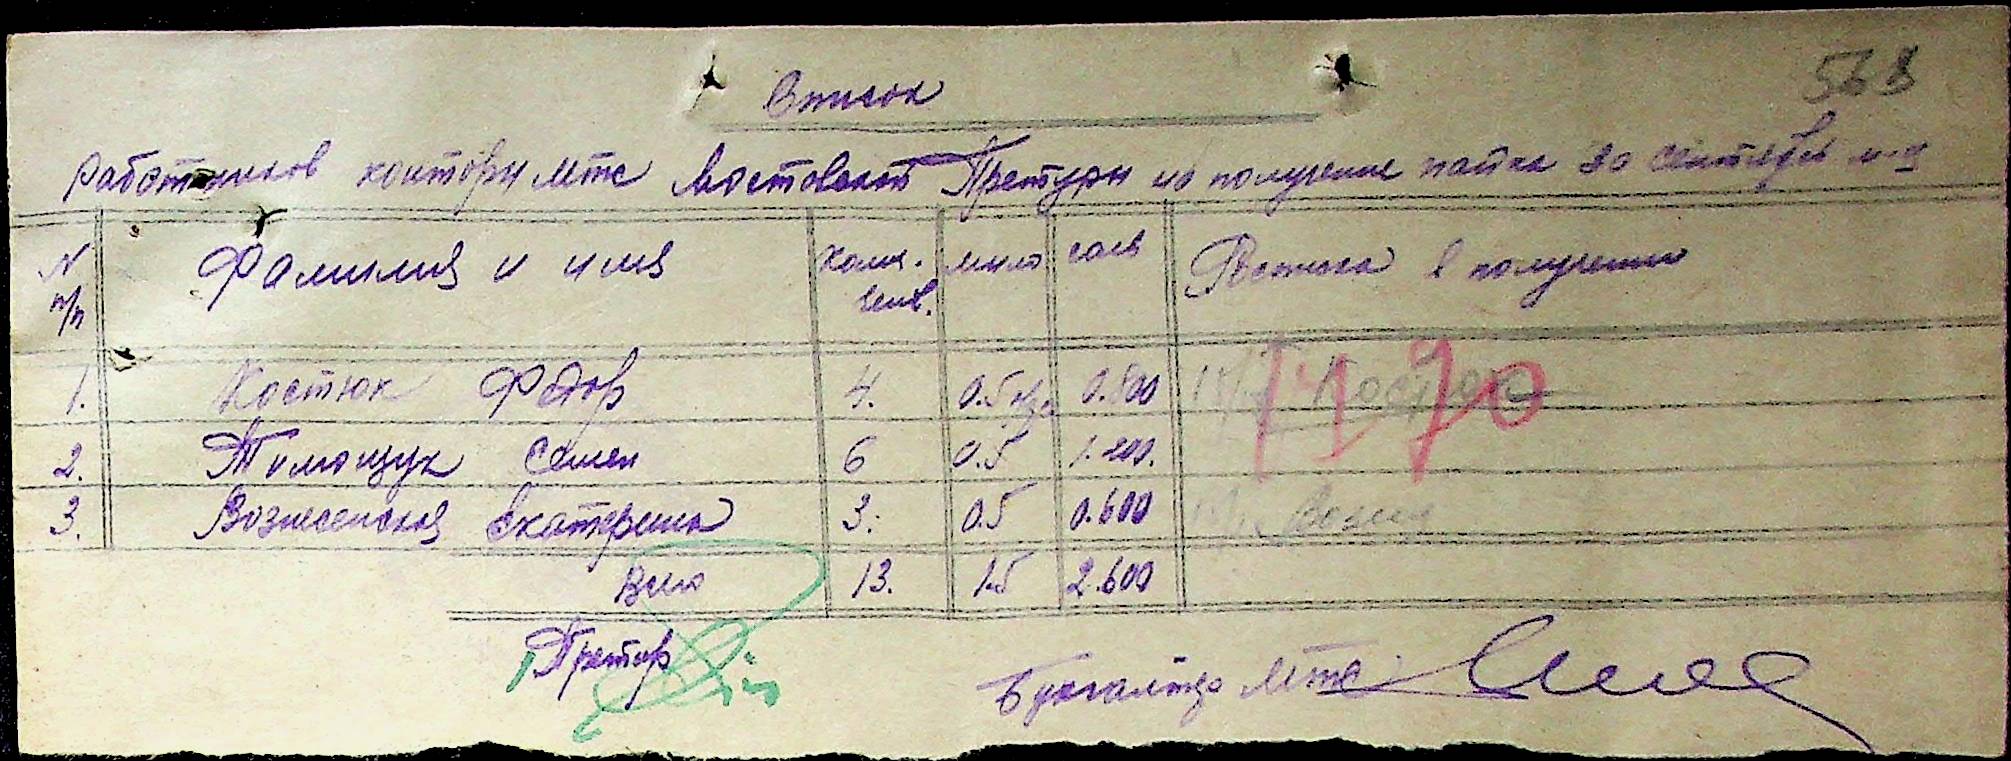 568
Список
Работников конторы мтс Мостовской Претуры на получение пайка за сентябрь м-ц
N п/п Фамилия и имя Колич. челов. мыло соль Росписка в получении
1. Костюк Федор 4. 0.5 0.800 Костюк
1470
2. Томащук Семен 6 0.5 1.200.
3. Вознесенская Екатерина 3. 0.5 0.600
Всего 13. 1.5 2.600
Претор
Бухгалтер Мтс